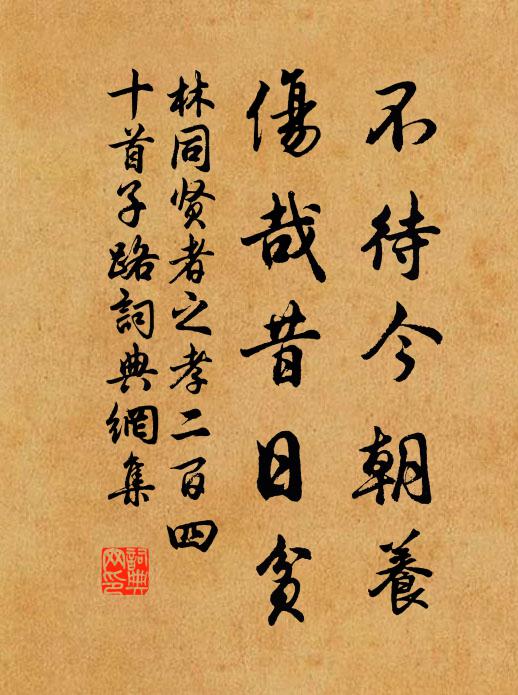 不待今朝養
傷哉昔日貧
林同贤者之孝二百四
十首子路詞典網集
詞典
网印